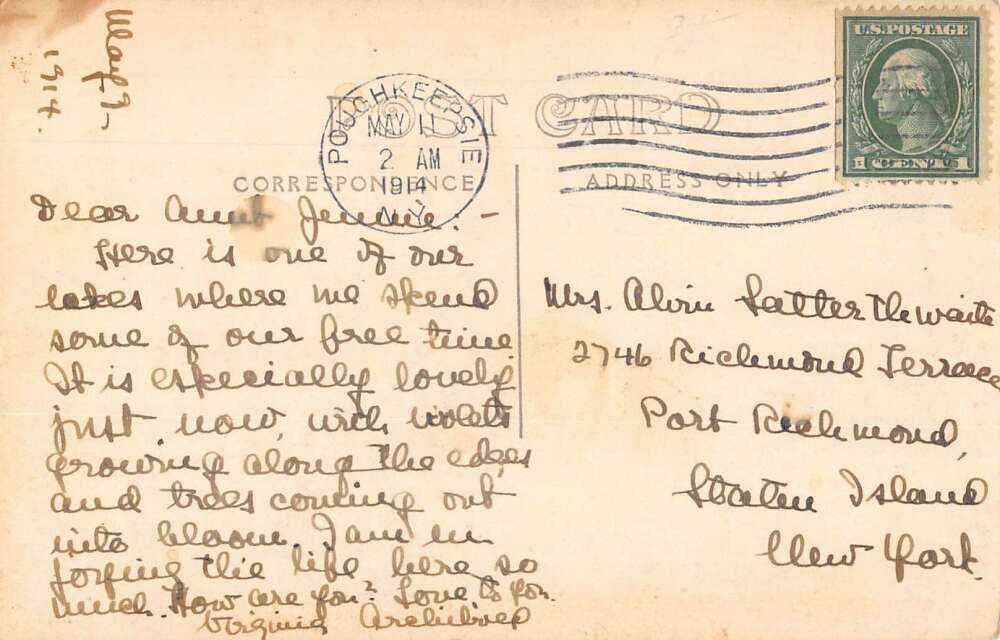 May 9 -
1914.
POST CARD
POUGHKEEPSIE
MAY 11
2 AM
1914
N.Y.
U.S. POSTAGE
1 CENT 1
CORRESPONDENCE
ADDRESS ONLY
Dear Aunt Jennie: -
Here is one of our
lakes where we spend
some of our free time
It is especially lovely
just now, with violets
growing along the edges
and trees coming out
into bloom. I am en
joying the life here so
much. How are you? Love to you.
Virginia
Mrs. Alvin Satterthwaite
2746 Richmond Terrace
Port Richmond,
Staten Island
New York.